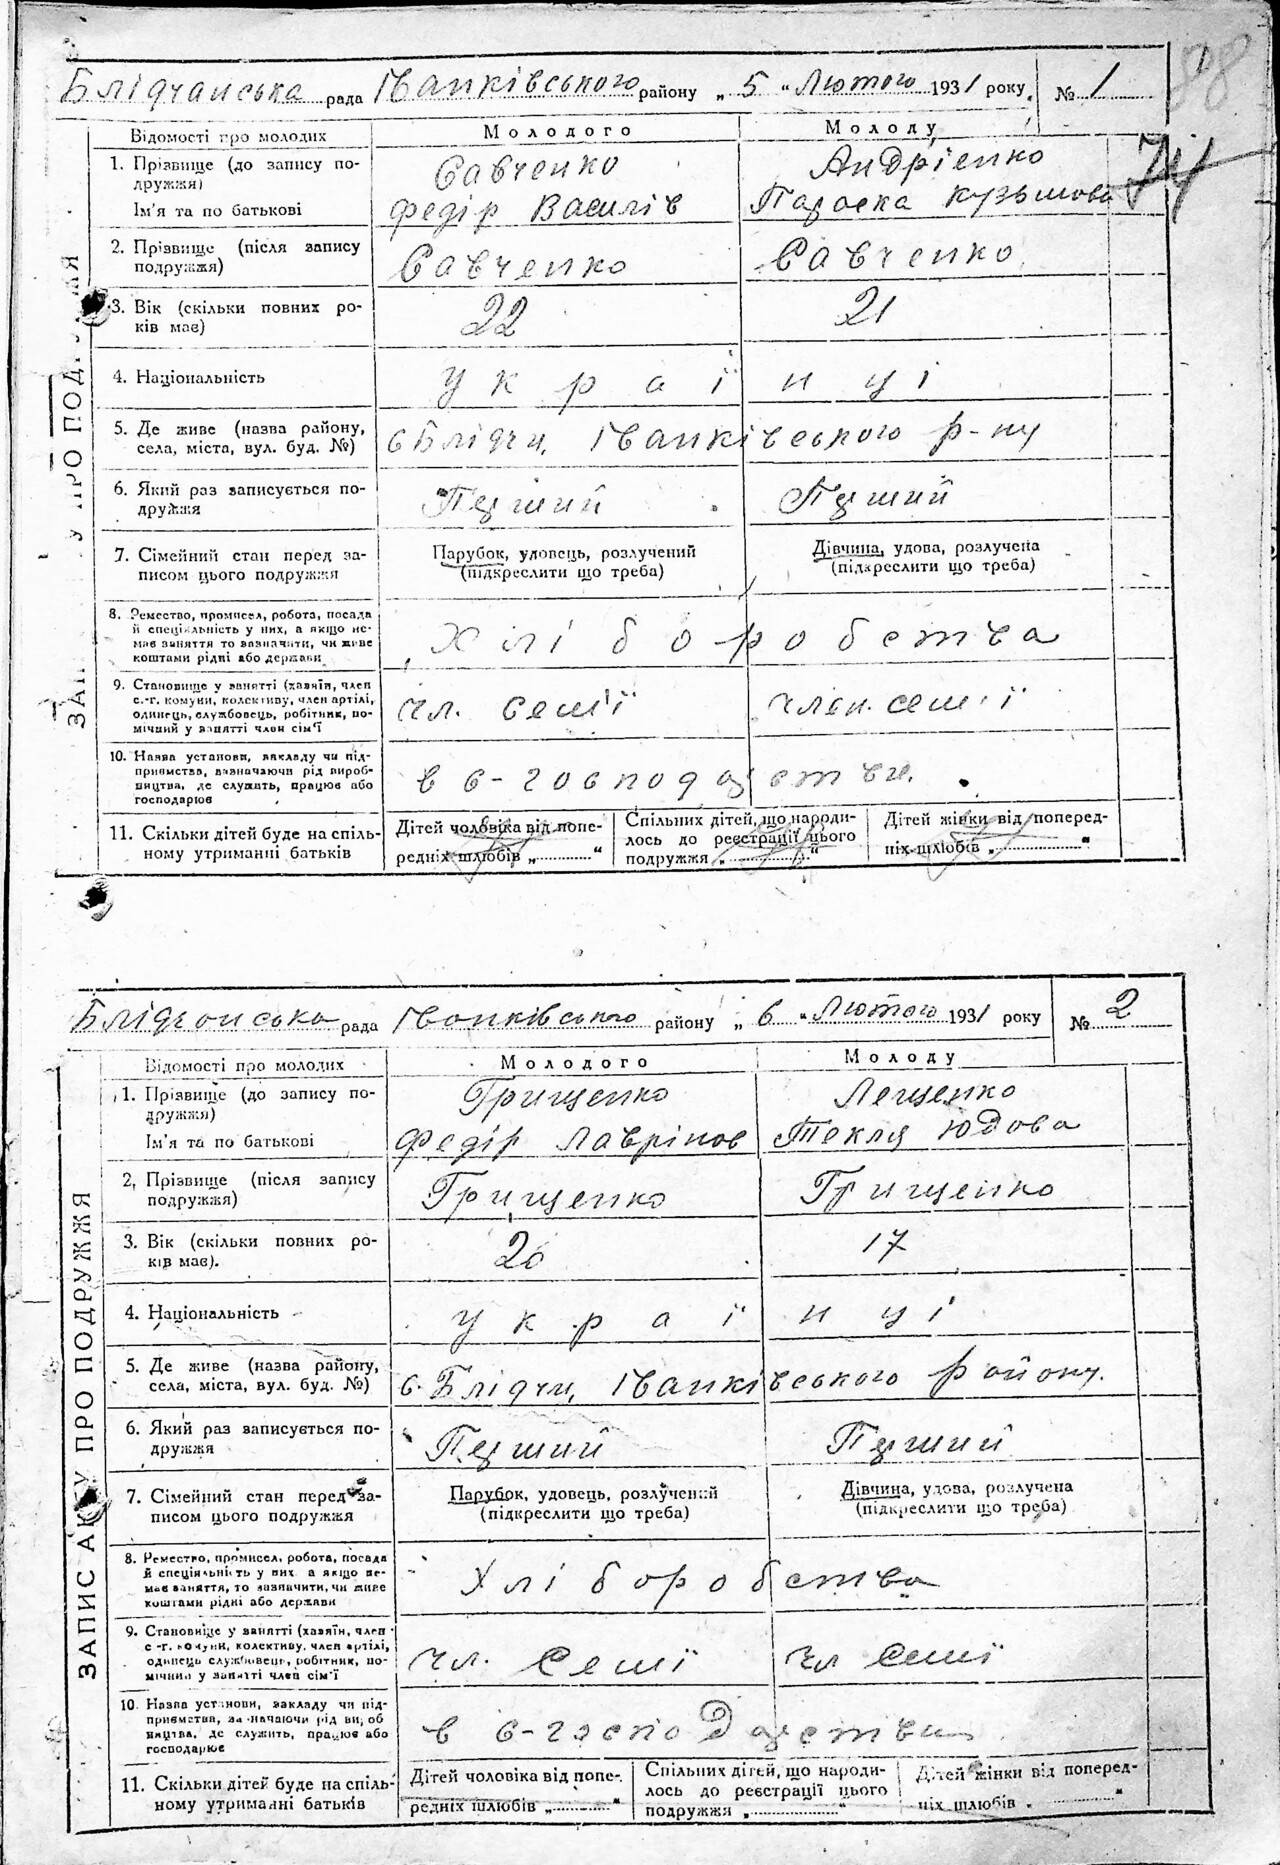 88
Блідчанська рада Іванківського району „ 5 “ Лютого 1931 року. № 1
74
ЗАП У ПРО ПОДРУЖЖЯ
Відомості про молодих Молодого Молоду
1. Прізвище (до запису по- Савченко Андрієнко
дружжя)
Ім'я та по батькові Федір Василів Параска Кузьмова
2. Прізвище (після запису Савченко Савченко
подружжя)
3. Вік (скільки повних ро- 22 21
ків має)
4. Національність українці
5. Де живе (назва району, с Блідчи, Іванківського р-ну
села, міста, вул. буд. №)
6. Який раз записується по- Перший Перший
дружжя
7. Сімейний стан перед за- Парубок, удовець, розлучений Дівчина, удова, розлучена
писом цього подружжя (підкреслити що треба) (підкреслити що треба)
8. Ремество, промисел, робота, посада
й спеціяльність у них, а якщо не- Хліборобства
має заняття то зазначити, чи живе
коштами рідні або держави
9. Становище у занятті (хазяїн, член
с.-г. комуни, колективу, член артілі, чл. семії член. семії
одинець, службовець, робітник, по-
мічний у занятті член сім'ї
10. Назва установи, закладу чи під-
приємства, зазначаючи рід вироб- в с-господарстви.
ництва, де служить, працює або
господарює
11. Скільки дітей буде на спіль- Дітей чоловіка від попе- Спільних дітей, що народи- Дітей жінки від поперед-
ному утриманні батьків редніх шлюбів „ “ лось до реєстрації цього ніх шлюбів „ “
подружжя „ “
Блідчанська рада Іванківського району „ 6 “ Лютого 1931 року № 2
ЗАПИС АКТУ ПРО ПОДРУЖЖЯ
Відомості про молодих Молодого Молоду
1. Прізвище (до запису по- Грищенко Лещенко
дружжя)
Ім'я та по батькові Федір Лаврінов Текля Юдова
2. Прізвище (після запису Грищенко Грищенко
подружжя)
3. Вік (скільки повних ро- 20 17
ків має).
4. Національність українці
5. Де живе (назва району, с. Блідчи, Іванківського району.
села, міста, вул. буд. №)
6. Який раз записується по- Перший Перший
дружжя
7. Сімейний стан перед за- Парубок, удовець, розлучений Дівчина, удова, розлучена
писом цього подружжя (підкреслити що треба) (підкреслити що треба)
8. Ремество, промисел, робота, посада
й спеціяльність у них а якщо не- Хліборобства
має заняття, то зазначити, чи живе
коштами рідні або держави
9. Становище у занятті (хазяїн, член
с-г. комуни, колективу, член артілі, чл. семії чл семії
одинець службовець, робітник, по-
мічний у занятті член сім'ї
10. Назва установи, закладу чи під-
приємства, зазначаючи рід вироб- в с-господарстви
ництва, де служить, працює або
господарює
11. Скільки дітей буде на спіль- Дітей чоловіка від попе- Спільних дітей, що народи- Дітей жінки від поперед-
ному утриманні батьків редніх шлюбів „ “ лось до реєстрації цього ніх шлюбів „ “
подружжя „ “